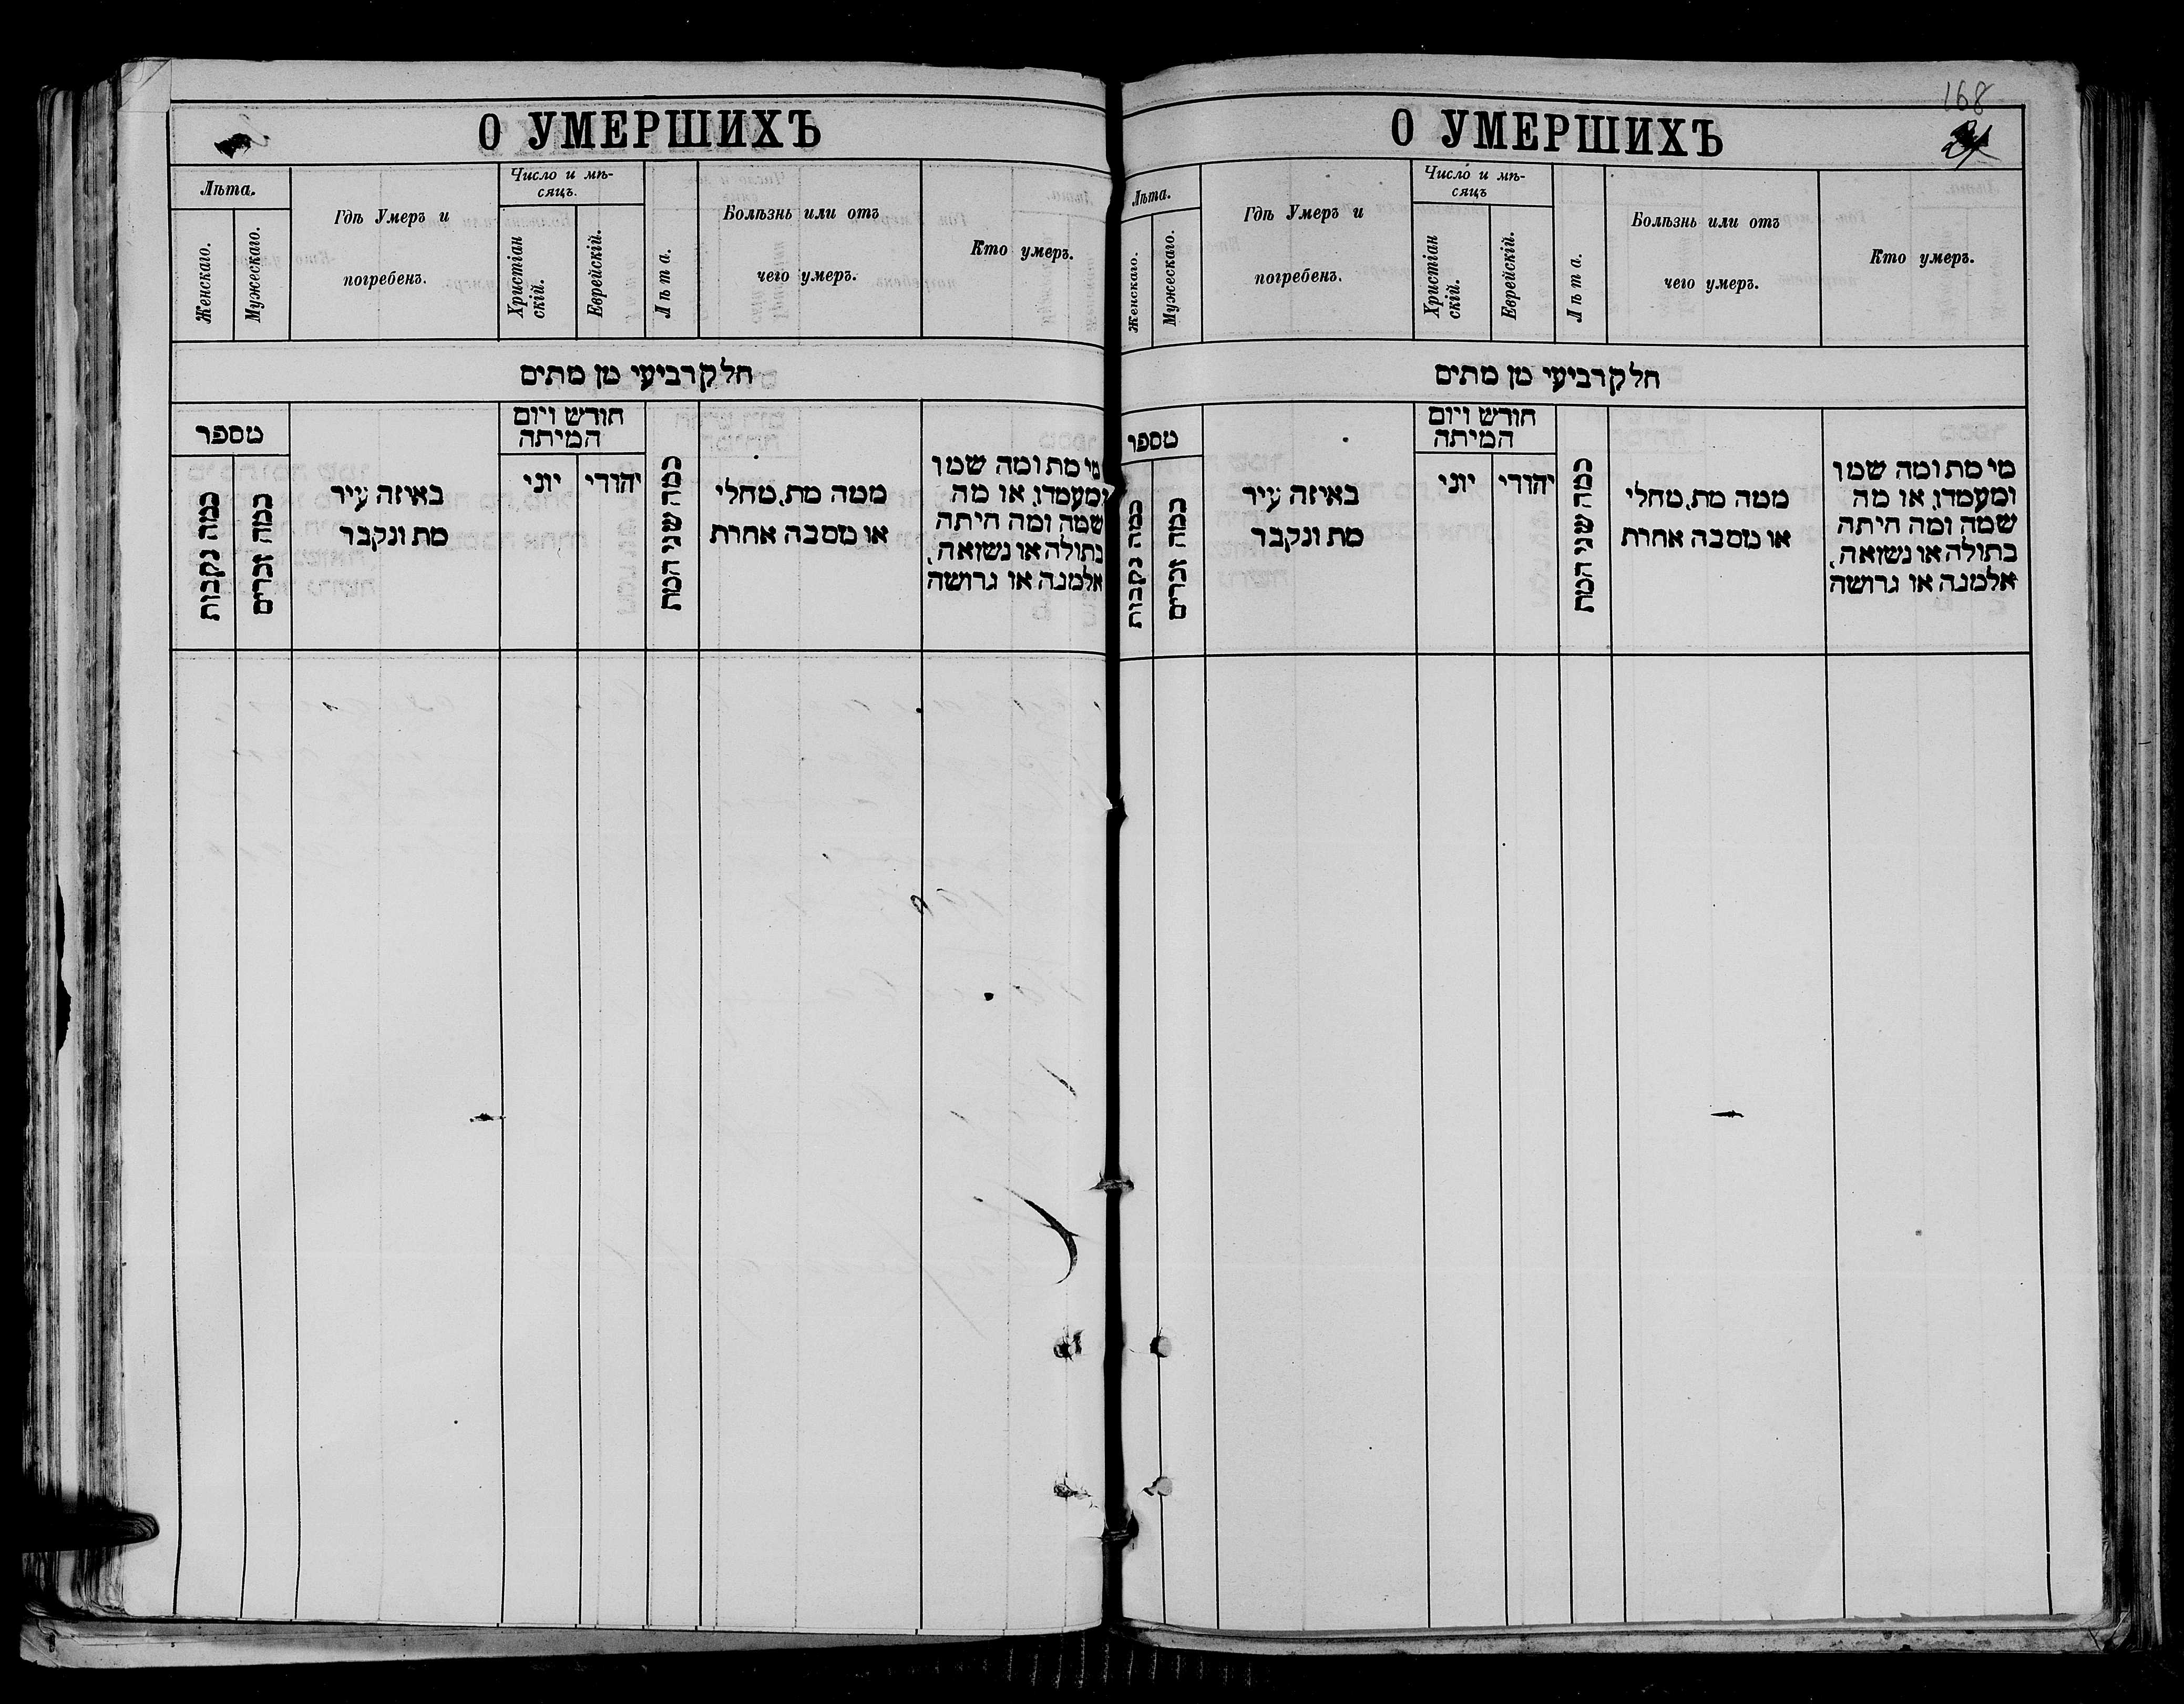 О УМЕРШИХЪ
Лѣта.
Женскаго.
Мужескаго.
Гдѣ Умеръ и
погребенъ.
Число и мѣ-
сяцъ.
Христіан
скій.
Еврейскій.
Лѣта.
Болѣзнь или отъ
чего умеръ.
Кто умеръ.
חלק רביעי מן מתים
מספר
כמה נקבות
כמה זכרים
באיזה עיר
מת ונקבר
חודש ויום
המיתה
יוני
יהודי
כמה שני המת
ממה מת, מחלי
או מסבה אחרת
מי מת ומה שמו
ומעמדו, או מה
שמה ומה היתה
בתולה או נשואה,
אלמנה או גרושה
168
О УМЕРШИХЪ
Лѣта.
Женскаго.
Мужескаго.
Гдѣ Умеръ и
погребенъ.
Число и мѣ-
сяцъ
Христіан
скій.
Еврейскій.
Лѣта.
Болѣзнь или отъ
чего умеръ.
Кто умеръ.
חלק רביעי מן מתים
מספר
כמה נקבות
כמה זכרים
באיזה עיר
מת ונקבר
חודש ויום
המיתה
יוני
יהודי
כמה שני המת
ממה מת, מחלי
או מסבה אחרת
מי מת ומה שמו
ומעמדו, או מה
שמה ומה היתה
בתולה או נשואה,
אלמנה או גרושה